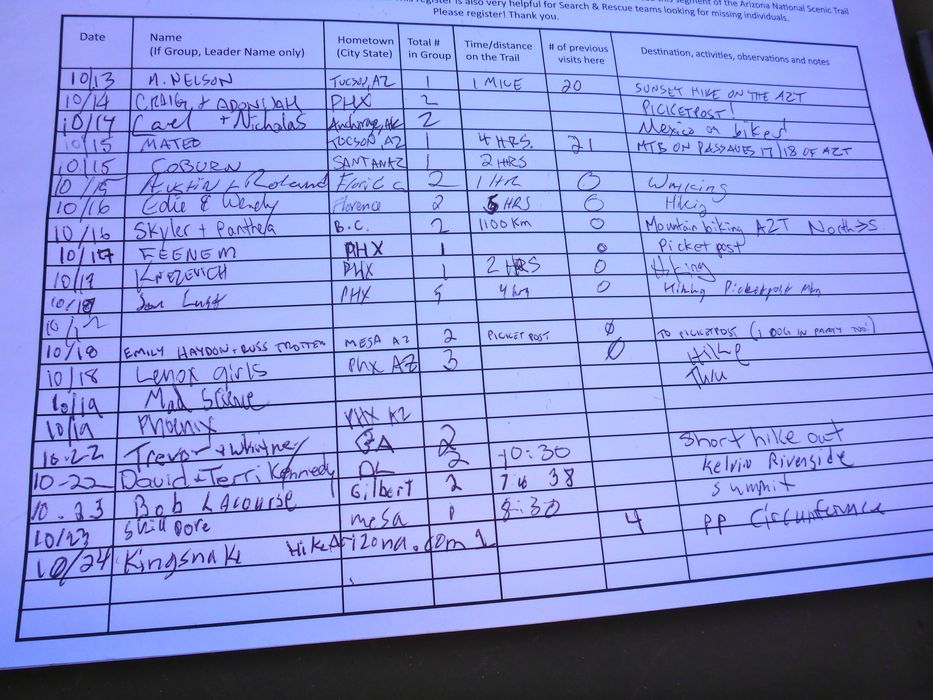 register is also very helpful for Search & Rescue teams looking for missing individuals.
segment of the Arizona National Scenic Trail
Please register! Thank you.
Date Name (If Group, Leader Name only) Hometown (City State) Total # in Group Time/distance on the Trail # of previous visits here Destination, activities, observations and notes
10/13 M. NELSON TUCSON, AZ 1 1 MILE 20 SUNSET HIKE ON THE AZT
10/14 CRAIG + ADONIJAH PHX 2 PICKETPOST!
10/14 Cael + Nicholas Anchorage, AK 2 Mexico on bikes!
10/15 MATEO TUCSON, AZ 1 4 HRS. 21 MTB ON PASSAGES 17/18 OF AZT
10/15 COBURN SANTAN AZ 1 2 HRS
10/15 Austin + Roland Florida 2 1 HR 0 Walking
10/16 Edie & Wendy Florence 2 5 HRS 0 Hiking
10/16 Skyler + Panthea B.C. 2 1100 km 0 Mountain biking AZT North > S.
10/17 FEENEM PHX 1 0 Picket post
10/17 KNEZEVICH PHX 1 2 HRS 0 Hiking
Jon Lust PHX 5 4 hrs 0 Hiking Picketpost Mtn
10/18 EMILY HAYDON + RUSS TROTTER MESA AZ 2 PICKET POST 0 TO PICKETPOST (1 DOG IN PARTY TOO!)
10/18 Lenox girls Phx AZ 3 0 Hike
10/19 Mad Science Thru
10/19 Phoenix PHX AZ
10-22 Trevor + Whitney GA 2 10:30 Short hike out
10-22 David + Terri Kennedy 2 Kelvin Riverside
10.23 Bob Lacourse Gilbert 2 38 summit
10/23 mesa 8:30 4 PP Circumference
10/24 Kingsnake HikeArizona.com 1